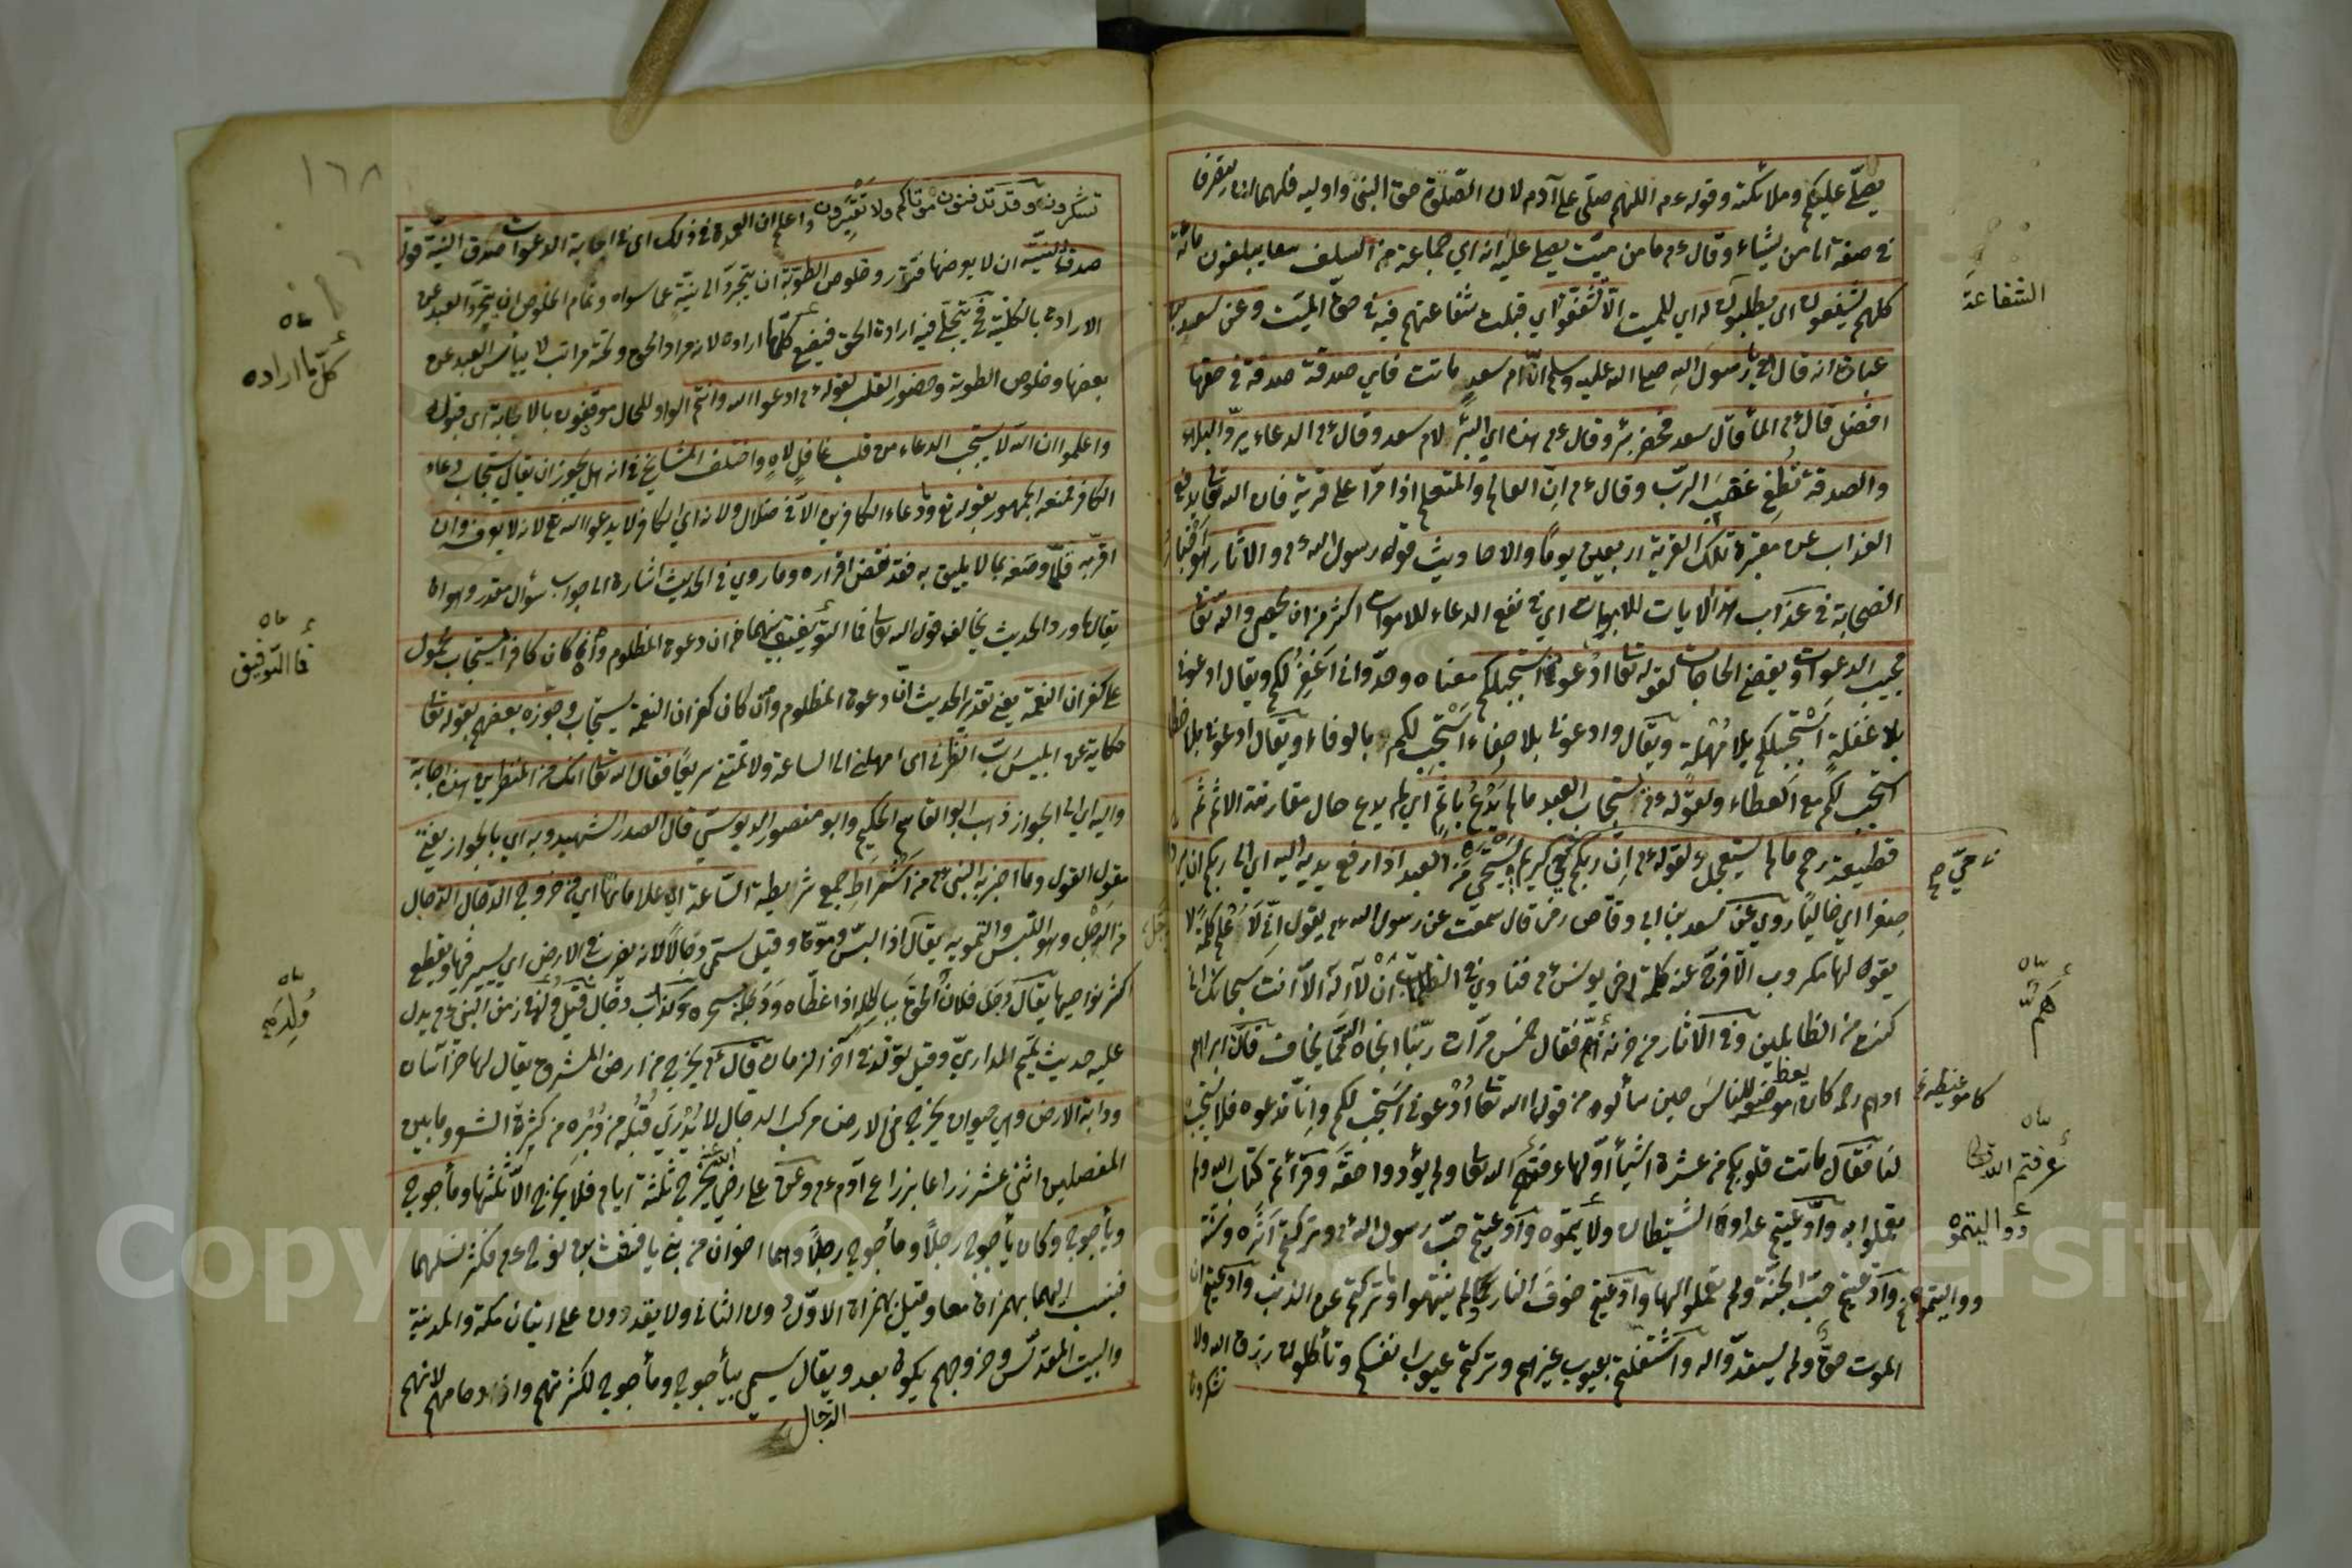 يصلّي عليكم وملائكته وقوله ءم اللهم صلّى على آدم لان الصّلوة حق النبي
في صفة الى من يشاء وقال ءم ما من ميّت يصلي عليه انه اي جماعة من السلف معا يبلغون مائة
كلهم يشفعون اي يطلبون له اي للميت الّا شُفّعوا اي قبلت شفاعتهم فيه في حق الميّت وعن سعد بن
عبادة انه قال يا رسول الله صلى الله عليه وسلم انّ ام سعد ماتت فاي صدقة صدقة في حقها
افضل قال ءم الماء قال سعد فحفر بئر وقال ءم هذه اي البئر لام سعد وقال ءم الدعاء يردّ البلاء
والصدقة تُطفِئ غضبَ الربّ وقال ءم اِنّ العالم والمتعلم اذا مرّا على قرية فان الله تعالى يرفع
العذاب عن مقبرة تلك القرية اربعين يومًا والاحاديث قول رسول الله ءم والاثار هو اخبار
الصحابة في اي في نفع الدعاء للاموات اكثر من ان يحصى والله تعا
مجيب الدعوات ويقضي الحاجات لقوله تعا ادعوني استجب لكم معناه وحدّواني اَغفِرْ لكم ويقال ادعوني
بلا غفلةٍ اَسْتَجِبْ لكم بلا مُهْلة ويقال وادعوني بلا جفاء اَسْتَجِبْ لكم بالوفاء ويقال ادعوني بلا خطا
استجب لكم مع العطاء ولقوله ءم يستجاب العبد ما لم يَدْعُ باِثمٍ اي لم يدع حال مقارفة الاثم ثم
قطيعة رحم ما لم يستعجل ولقوله ءم اِنّ ربكم حي كريم يستحي من العبد اذا رفع يديه اليه اي الى ربكم ان يردّ
صِفرا اي خاليًا روي عن سعد بن ابي وقّاص رض قال سمعت عن رسول الله ءم يقول انّي لَاَعْلم كلمة لا
يقول لها مكروب الّا فرّج عنه كلمة اخي يونس ءم فنادى في الظلمات اَنْ لا آله الّا انت سبحانك اني
كنت من الظالمين وفي الآثار من حزنه اَمْرٌ فقال خمس مرّات ربّنا انجاه الله ممّا يخاف قال ابراهيم
ادهم رحمه كان يعظ للناس حين سألوه من قول الله تعا اُدْعوني استجب لكم واِنّا ندعوه فلا يستجيب
لنا فقال ماتت قلوبكم من عشرة اشياء اوّلها عرفتم الله تعا ولم يؤدوا حقّه وقرأتم كتاب الله ولم
يعملوا به وادّعيتم عداوة الشيطان وادّعيتم حبّ رسول الله ءم وتركتم اَثَره وسنّته
وادّعيتم حبّ الجنّة ولم يعملوا لها وادّعيتم خوف النار ولم ينتهوا عن الذنب وادّعيتم ان
الموت حقٌّ ولم يستعدّوا له واشتغلتم بعيوب غيركم وتركتم عيوب انفسكم وتأكلون رزق الله ولا
تشكرونا
الشفاعة
حيّ صح
هَمٌّ
عرفتم الله تعا
١٦٨
تشكرونه وقد تدفنون موتاكم ولا تعتبرون واعلم ان العمدة في ذلك اي في اجابة الدعوات صدق النية قوله
صدق النيّة ان لا وخلوص الطويّة ان يتجرّد الى نيّةٍ عما سواه وتمام الخلوص ان يتجرّد العبد عن
الارادة بالكلّية فح يتجلّى فيه ارادة الحق فيقع كلّما اراده لانه مراد الحق ولا ييأس العبد عن
بعضها وخلوص الطوية وحضور القلب لقوله ءم ادعوا الله وانتم الواو للحال موقنون بالاجابة اي قبوله
واعلموا ان الله لا يستجيب الدعاء من قلب غافلٍ لاهٍ واختلف المشايخ في انه هل يجوز ان يقال يستجاب دعاء
الكافر فمنعه الجمهور بقوله تع وما دعاء الكافرين الّا في ضلال ولانه اي الكافر لا يدعوا الله تع لانه لا يعرفه وان
اقرّ به فلمّا وصفه بما لا يليق به فقد نقض اقراره وما روي في الحديث اشارة الى جواب سؤال مقدر وهو ان
يقال ما ورد الحديث يخالف قول الله تعا فما التوفيق بينهما من ان دعوة المظلوم وان كان كافرا يستجاب محمول
على كفران النعمة يعني تقدير الحديث انّ دعوة المظلوم وان كان كفران النعمة يستجاب وجوّزه بعضهم بقوله تعا
حكاية عن ابليس رَبّ انظرني اي امهلني الى الساعة ولا تمتني سريعًا فقال الله تعا انك من المنظرين هذه اجابة
واليه اي الى الجواز ذهب ابو القاسم الحكيم وابو منصور الدبوسي قال الصدر الشهيد وبه اي بالجواز يفتى
مقول القول وما اخبر به النبي ءم من اَشراطِ جمع شريطة السّاعة اي علاماتها اي من خروج الدجّال الدجّال
من الدَجْل وهو اللَّبس والتمويه يقال اذا لبّس وموّه وقيل سمّي دجّالًا لانه يضرب في الارض اي يسير فيها ويقطع
اكثر نواحيها يقال دجل فلانٌ الحقَّ بباطله اذا غطّاه قيل وُلِدَ في زمن النبي ءم يدل
عليه حديث تميم الداريّ وقيل يولد في آخر الزمان قال ءم يخرج من ارض المشرق يقال لها خراسان
ودابة الارض وهي حيوان يخرج من الارض مركب الدجال لا يُدْرى قُبُلُه من دُبُرِه من كثرة الشعر وما بين
المفصلين اثنى عشر زراعا بزراع آدم ءم وعن علي رضي الله يخرج ثلثة ايام فلا يخرج الّا ثلثها ومأجوج
ويأجوج وكان يأجوج رجلًا ومأجوج رجلًا وهما اخوان من بني يافث بن نوح ءم فكثر نسلهما
فينسب اليهما بهمزة معا وقيل بهمزة الاوّل دون الثاني ولا يقدرون على اتيان مكة والمدينة
والبيت المقدّس وخروجهم يكون بعد ويقال سمي بيأجوج ومأجوج لكثرتهم وازدحامهم لانهم
الدّجال
كلّما اراده
فما التّوفيق
وُلِدَ
Copyright © King Saud University